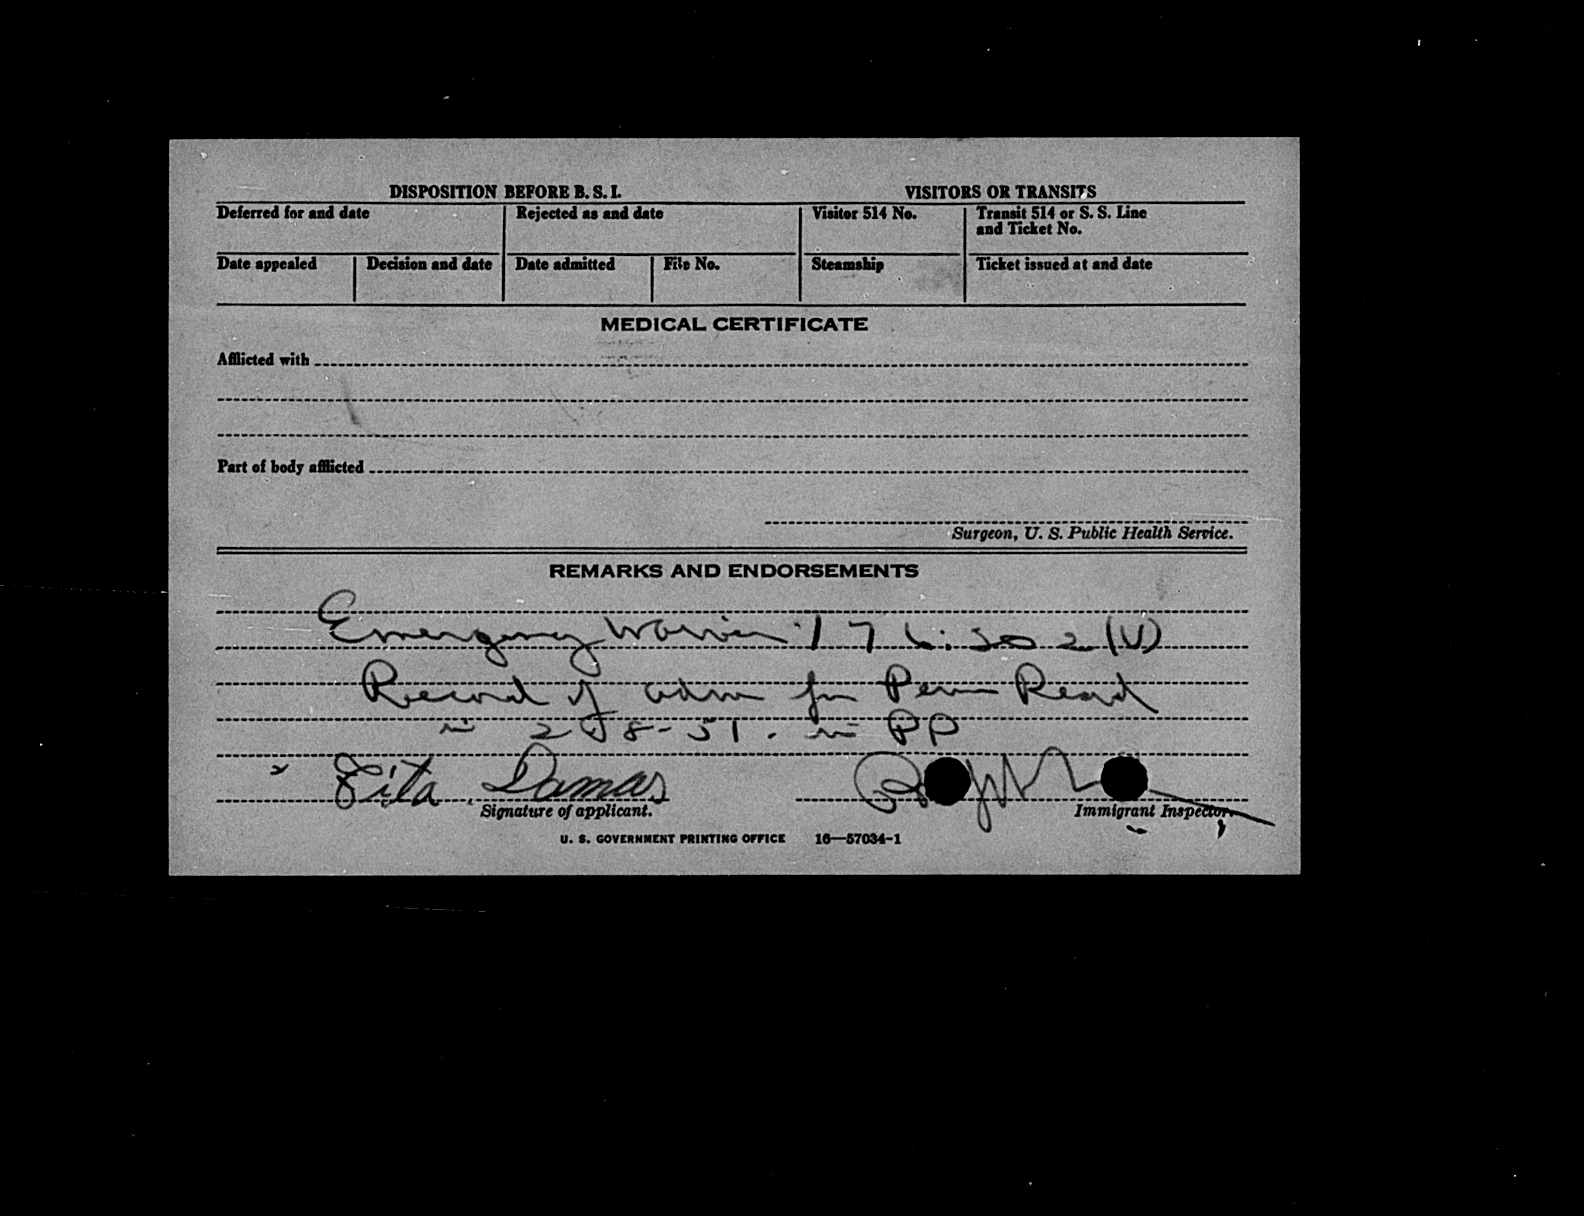 DISPOSITION BEFORE B. S. I.
VISITORS OR TRANSITS
Deferred for and date
Rejected as and date
Visitor 514 No.
Transit 514 or S. S. Line
and Ticket No.
Date appealed
Decision and date
Date admitted
File No.
Steamship
Ticket issued at and date
MEDICAL CERTIFICATE
Afflicted with
Part of body afflicted
Surgeon, U. S. Public Health Service.
REMARKS AND ENDORSEMENTS
Emergency Waiver 176.302 (V)
Record of adm for Perm Resid
in 2-8-51. in PP
Damas
Signature of applicant.
Immigrant Inspector.
U. S. GOVERNMENT PRINTING OFFICE 16—57034-1